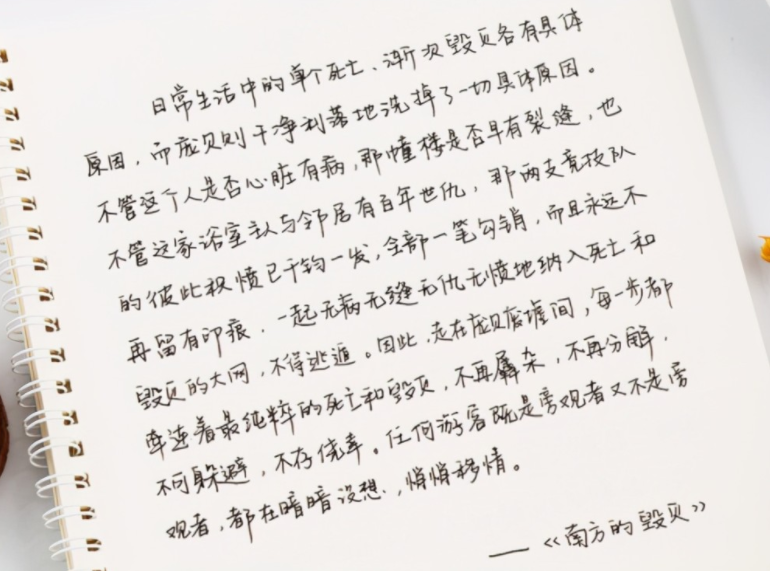 日常生活中的单个死亡、渐次毁灭各有具体
原因，而庞贝则干净利落地洗掉了一切具体原因。
不管这个人是否心脏有病，那幢楼是否早有裂缝，也
不管这家浴室主人与邻居有百年世仇，那两支竞技队
的彼此积愤已千钧一发，全部一笔勾销，而且永远不
再留有印痕．一起无病无缝无仇无愤地纳入死亡和
毁灭的大网，不得逃遁。因此，走在庞贝废墟间，每一步都
牵连着最纯粹的死亡和毁灭，不再羼杂，不再分解，
不可躲避，不存侥幸。任何游客既是旁观者又不是旁
观者，都在暗暗设想，悄悄移情。
——《南方的毁灭》